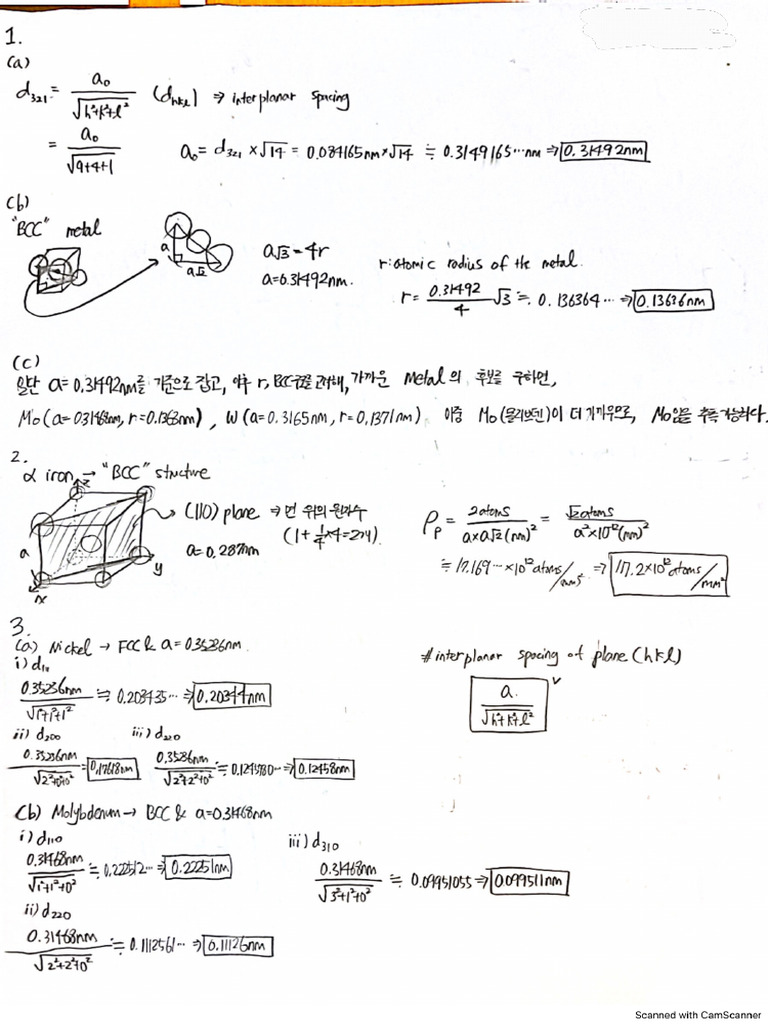 1.
(a)
d₃₂₁ = a₀/√(h²+k²+l²) (d_hkl) ⇒ interplanar spacing
= a₀/√(9+4+1) a₀ = d₃₂₁ × √14 = 0.084165nm × √14 ≒ 0.3149165···nm ⇒ 0.31492nm
(b)
"BCC" metal
a
a√2
a√3 = 4r
a=0.31492nm.
r: atomic radius of the metal.
r = 0.31492/4 √3 ≒ 0.136364··· ⇒ 0.13636nm
(c)
일단 a=0.31492nm를 기준으로 잡고, 이후 r, BCC구조를 고려해, 가까운 Metal의 후보를 구하면,
Mo(a=0.31468nm, r=0.1363nm), W(a=0.3165nm, r=0.1371nm) 이중 Mo(몰리브덴)이 더 가까우므로, Mo임을 추측 가능하다.
2.
α iron → "BCC" structure
z
a
x
y
→ (110) plane ⇒ 면 위의 원자수
a=0.287nm (1+¼×4=2개)
ρ_p = 2atoms/a×a√2(nm)² = √2atoms/a²×10⁻¹²(mm)²
≒ 17.169···×10¹²atoms/mm² ⇒ 17.2×10¹²atoms/mm²
3.
(a) Nickel → FCC & a=0.35236nm
i) d₁₁
0.35236nm/√(1²+1²+1²) ≒ 0.203435··· ⇒ 0.20344nm
ii) d₂₀₀ iii) d₂₂₀
0.35236nm/√(2²+0²+0²) = 0.17618nm 0.35236nm/√(2²+2²+0²) ≒ 0.1245780··· ⇒ 0.12458nm
# interplanar spacing of plane (hkl)
a/√(h²+k²+l²)
(b) Molybdenum → BCC & a=0.31468nm
i) d₁₁₀
0.31468nm/√(1²+1²+0²) ≒ 0.222512··· ⇒ 0.22251nm
ii) d₂₂₀
0.31468nm/√(2²+2²+0²) ≒ 0.1112561··· ⇒ 0.11126nm
iii) d₃₁₀
0.31468nm/√(3²+1²+0²) ≒ 0.09951055 ⇒ 0.099511nm
Scanned with CamScanner